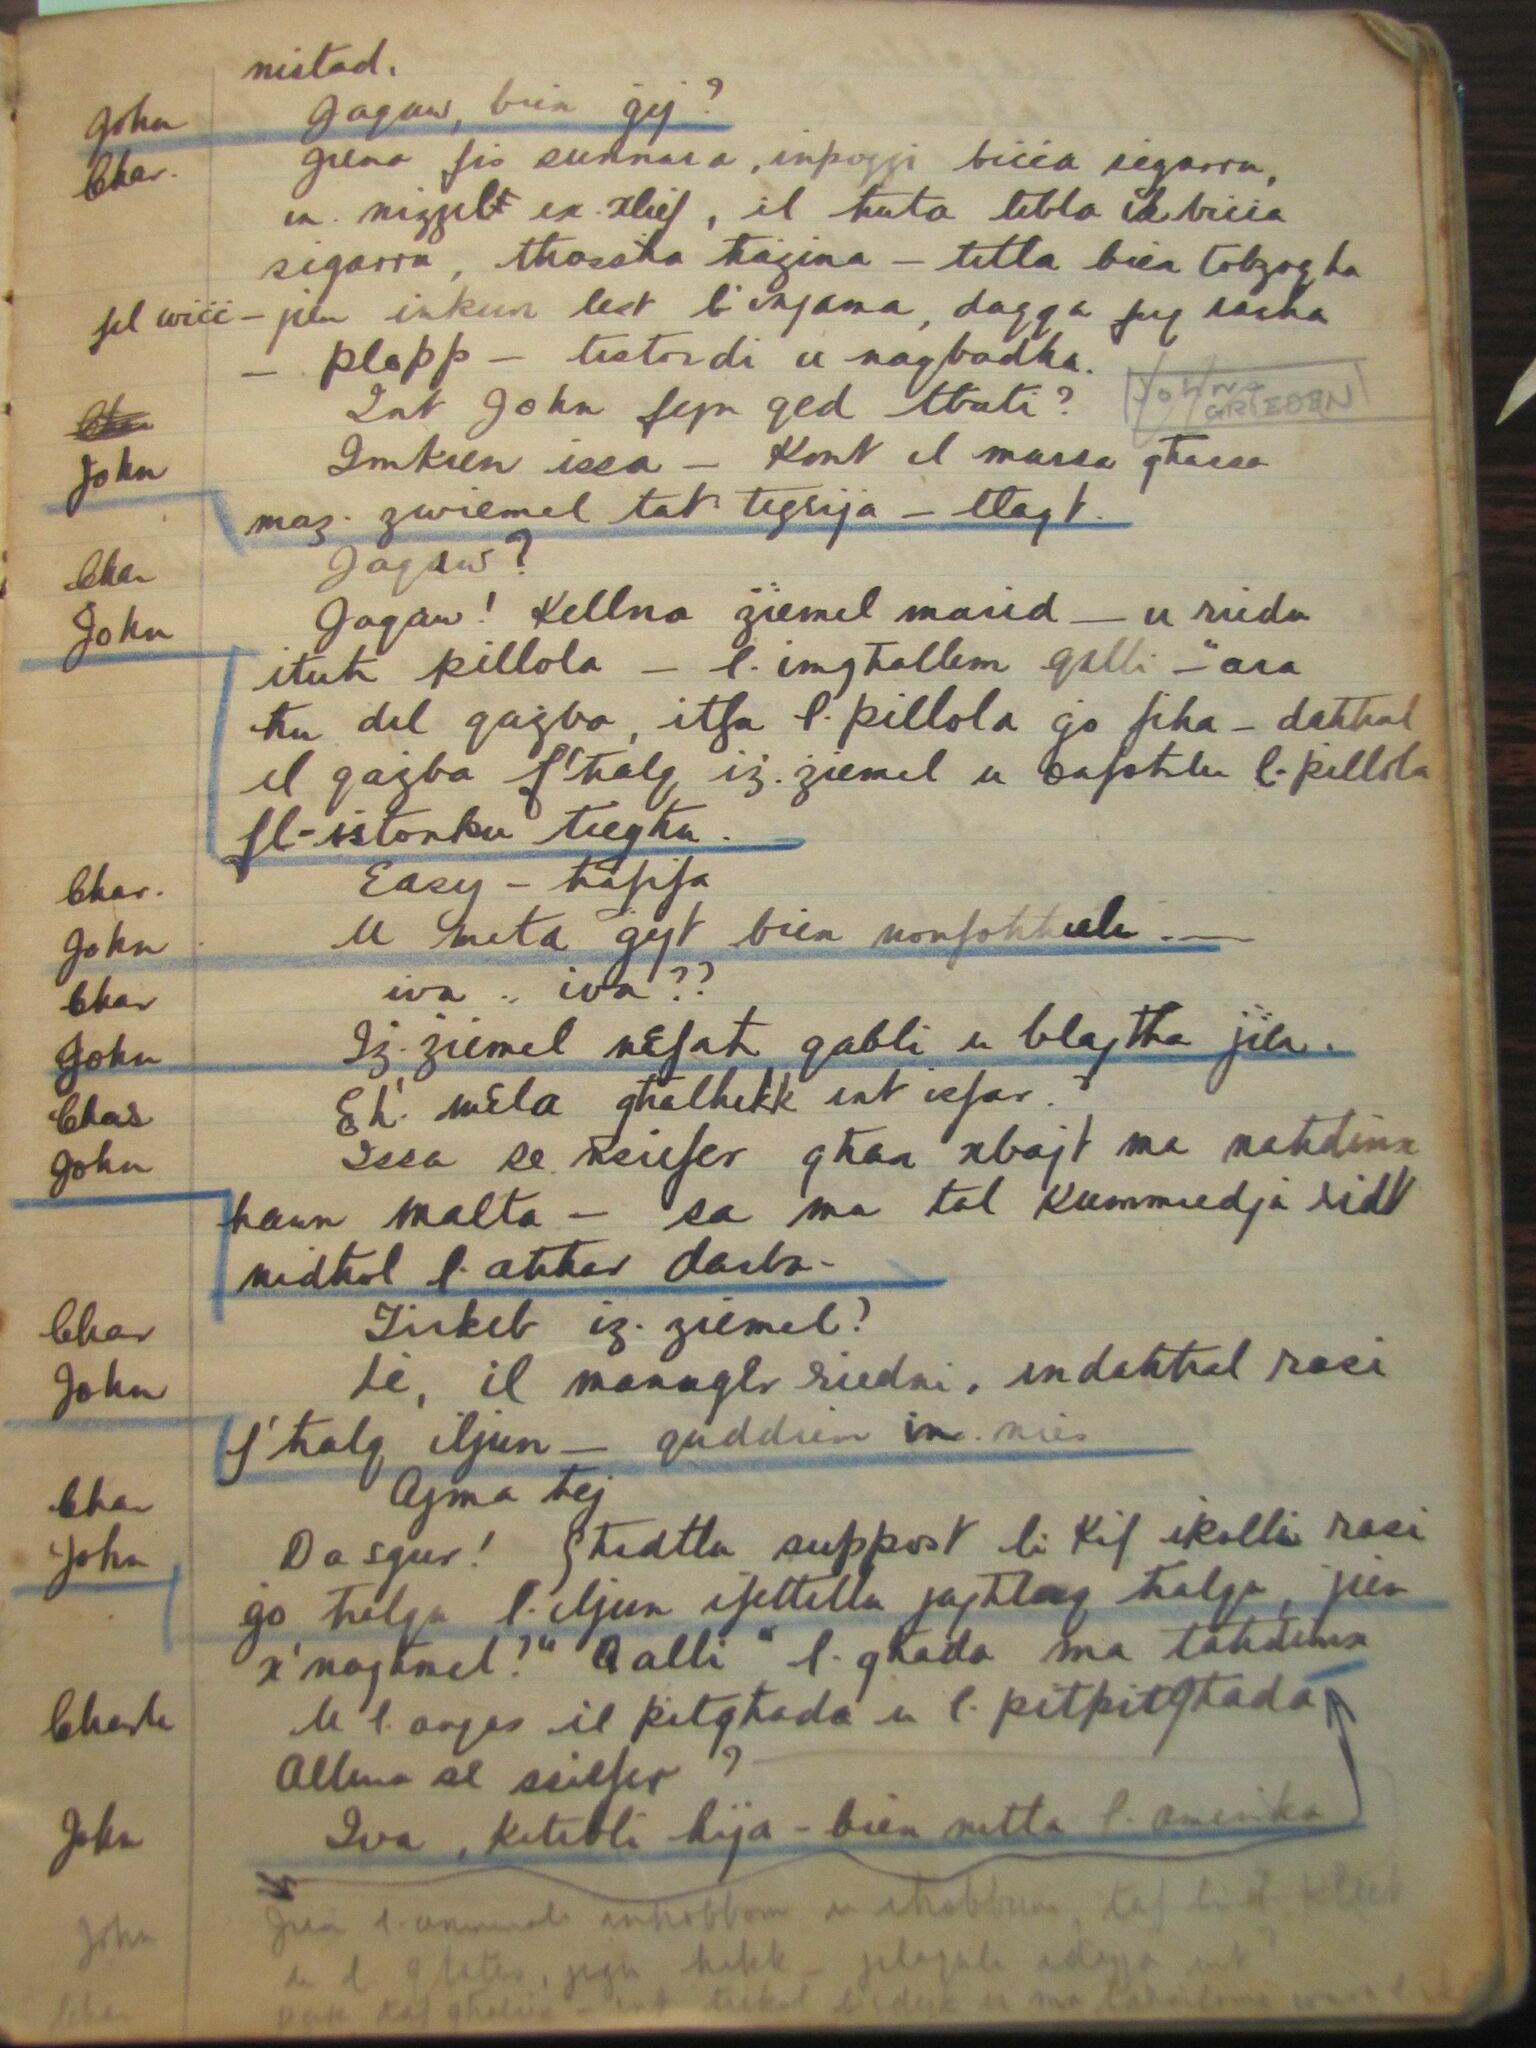 nistad.
John Jaqaw, biex ġej?
Char. Jiena fis sunnara, inpoġġi biċċa sigarra,
u niżżelt ix-xlief, il huta tibla il biċċa
sigarra, thossha hażina – titla biex tobżoqha
fil wiċċ – jien inkun lest bl injama, daqqa fuq rasha
– plapp – tistordi u naqbadha.
Int John fejn qed tbati?
John Imkien issa – Kont il mursa ghassa
maż-żwiemel tat tiġrija – tlaqt.
Char Jaqaw?
John Jaqaw! Kellna żiemel marid – u riedu
ituh pillola – l-imghallem qalli – "ara
hu dil qażba, itfa l-pillola ġo fiha – dahhal
il qażba f'halq iż-żiemel u onfohlu l-pillola
fl-istonku tieghu.
Char. Easy – hafifa
John U meta ġejt biex nonfohhielu .—
Char iva .. iva??
John Iż-żiemel nefah qabli u blajtha jien.
Char Eh! mela ghalhekk int isfar.
John Issa se nsiefer ghax xbajt ma nahdimx
hawn Malta – sa ma tal Kummiedja ridt
nidhol l-ahhar darba.
Char Tirkeb iż-żiemel?
John Le, il manager riedni, indahhal rasi
f'halq iljun – quddiem in-nies
Char Ajma hej
John Dasgur! Ghedtlu suppost li kif ikolli rasi
ġo halqu l-iljun ifettillu jaghlaq halqu, jien
x'naghmel?" Qalli "l-ghada ma tahdimx
Charlie U l-aqwas il pitghada u l-pitpitghada
Allura se ssiefer?
John Iva, ktibli hija – biex nitla l-Amerika
John Jien l-annimali inhobbhom u ihobbuni, taf li il klieb
u l
Char